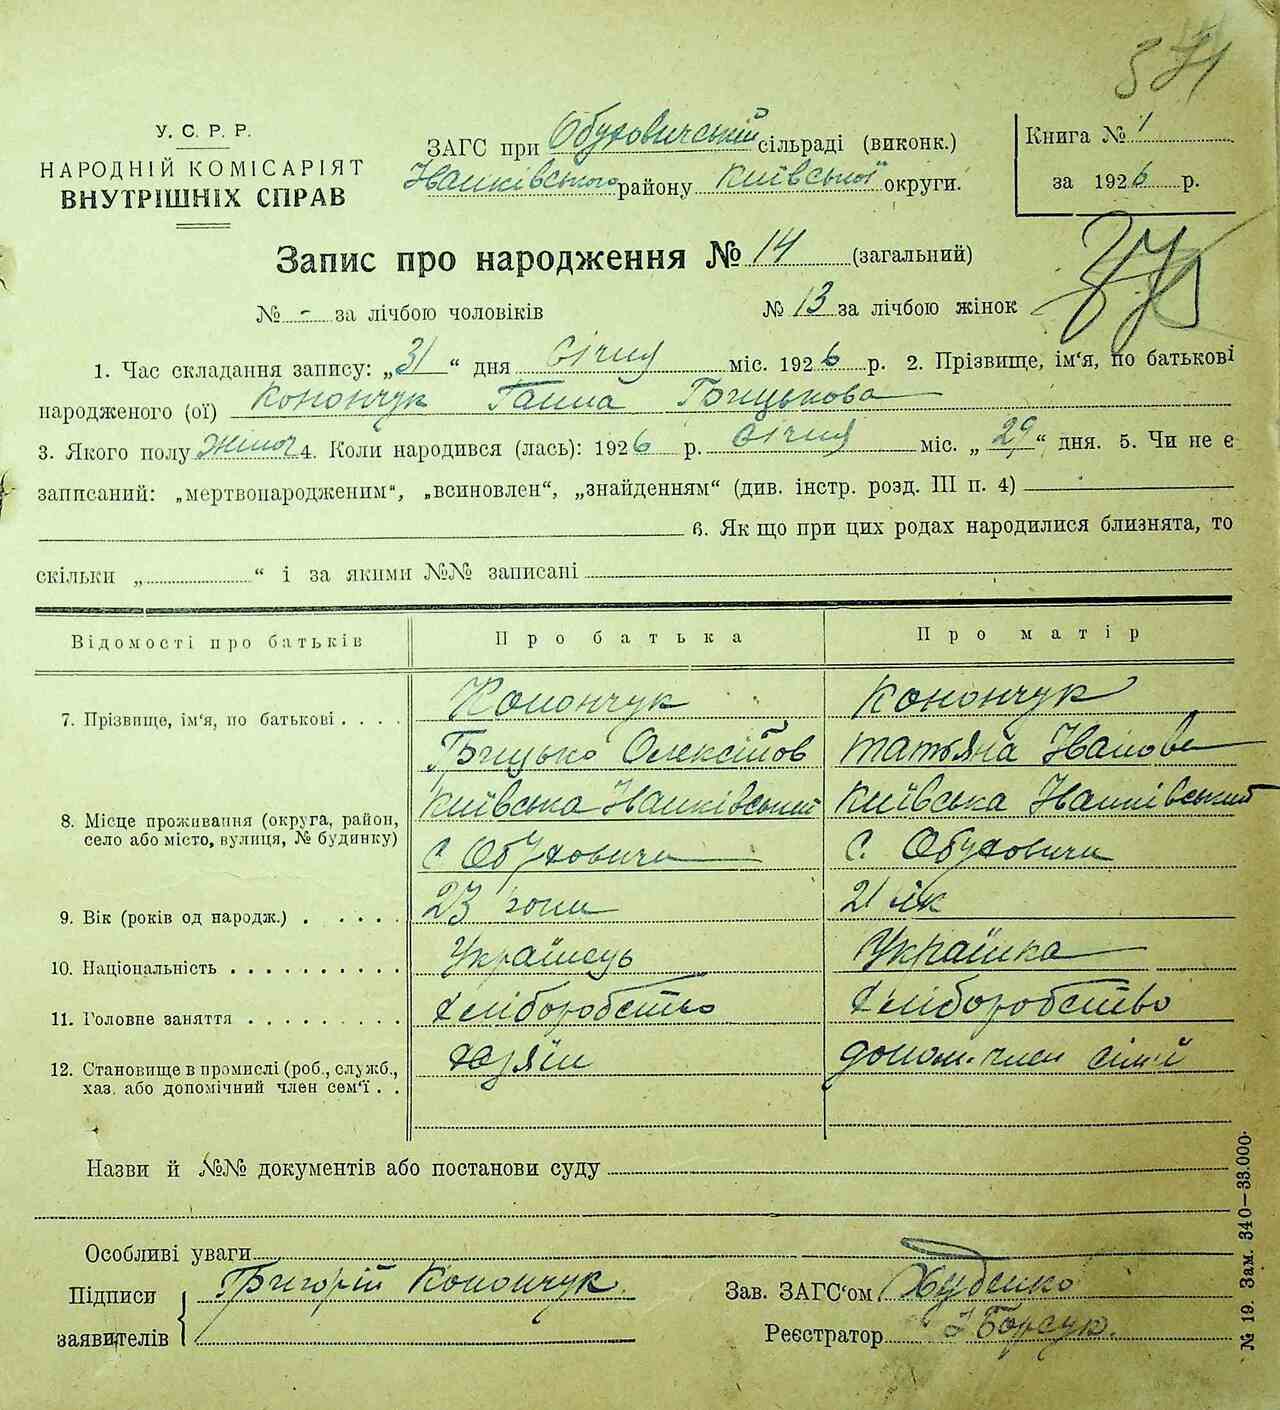 571
У. С. Р. Р.
НАРОДНІЙ КОМІСАРІЯТ
ВНУТРІШНІХ СПРАВ
ЗАГС при Обуховичській сільраді (виконк.)
Іванківського району Київської округи.
Книга № 1
за 1926 р.
Запис про народження № 14 (загальний)
№ - за лічбою чоловіків № 13 за лічбою жінок
1. Час складання запису: „31“ дня Січня міс. 1926 р. 2. Прізвище, ім'я, по батькові
народженого (ої) Конончук Ганна Грицькова
3. Якого полу Жіноч 4. Коли народився (лась): 1926 р. Січня міс. „29“ дня. 5. Чи не є
записаний: „мертвонародженим“, „всиновлен“, „знайденням“ (див. інстр. розд. III п. 4)
6. Як що при цих родах народилися близнята, то
скільки „ “ і за якими №№ записані
Відомості про батьків Про батька Про матір
7. Прізвище, ім'я, по батькові . . . . Конончук Конончук
Грицько Олексійов Татьяна Іванова
8. Місце проживання (округа, район, село або місто, вулиця, № будинку) Київська Іванківський Київська Іванківський
с. Обуховичи с. Обуховичи
9. Вік (років од народж.) . . . . . 23 роки 21 рік
10. Національність . . . . . . . . . . Українець Українка
11. Головне заняття . . . . . . . . . Хліборобство Хліборобство
12. Становище в промислі (роб., служб., хаз. або допомічний член сем'ї . . Хазяїн допом. член сім'ї
Назви й №№ документів або постанови суду
Особливі уваги
Підписи заявителів Григорій Конончук
Зав. ЗАГС'ом Худенко
Реєстратор Борсук.
№ 19. Зам. 340—33.000·